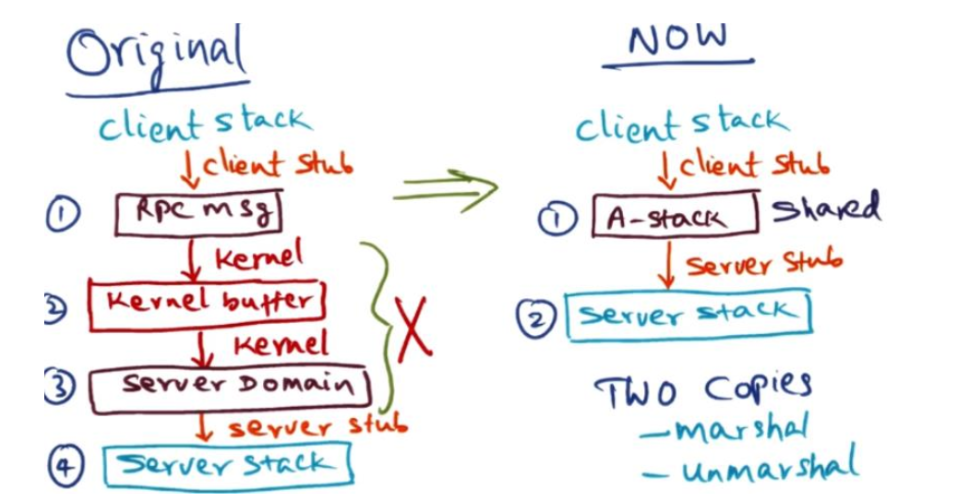 Original
client stack
client stub
① RPC msg
kernel
② Kernel buffer
kernel
③ Server Domain
server stub
④ Server stack
X
NOW
client stack
client stub
① A-stack shared
server stub
② Server stack
TWO Copies
- marshal
- unmarshal